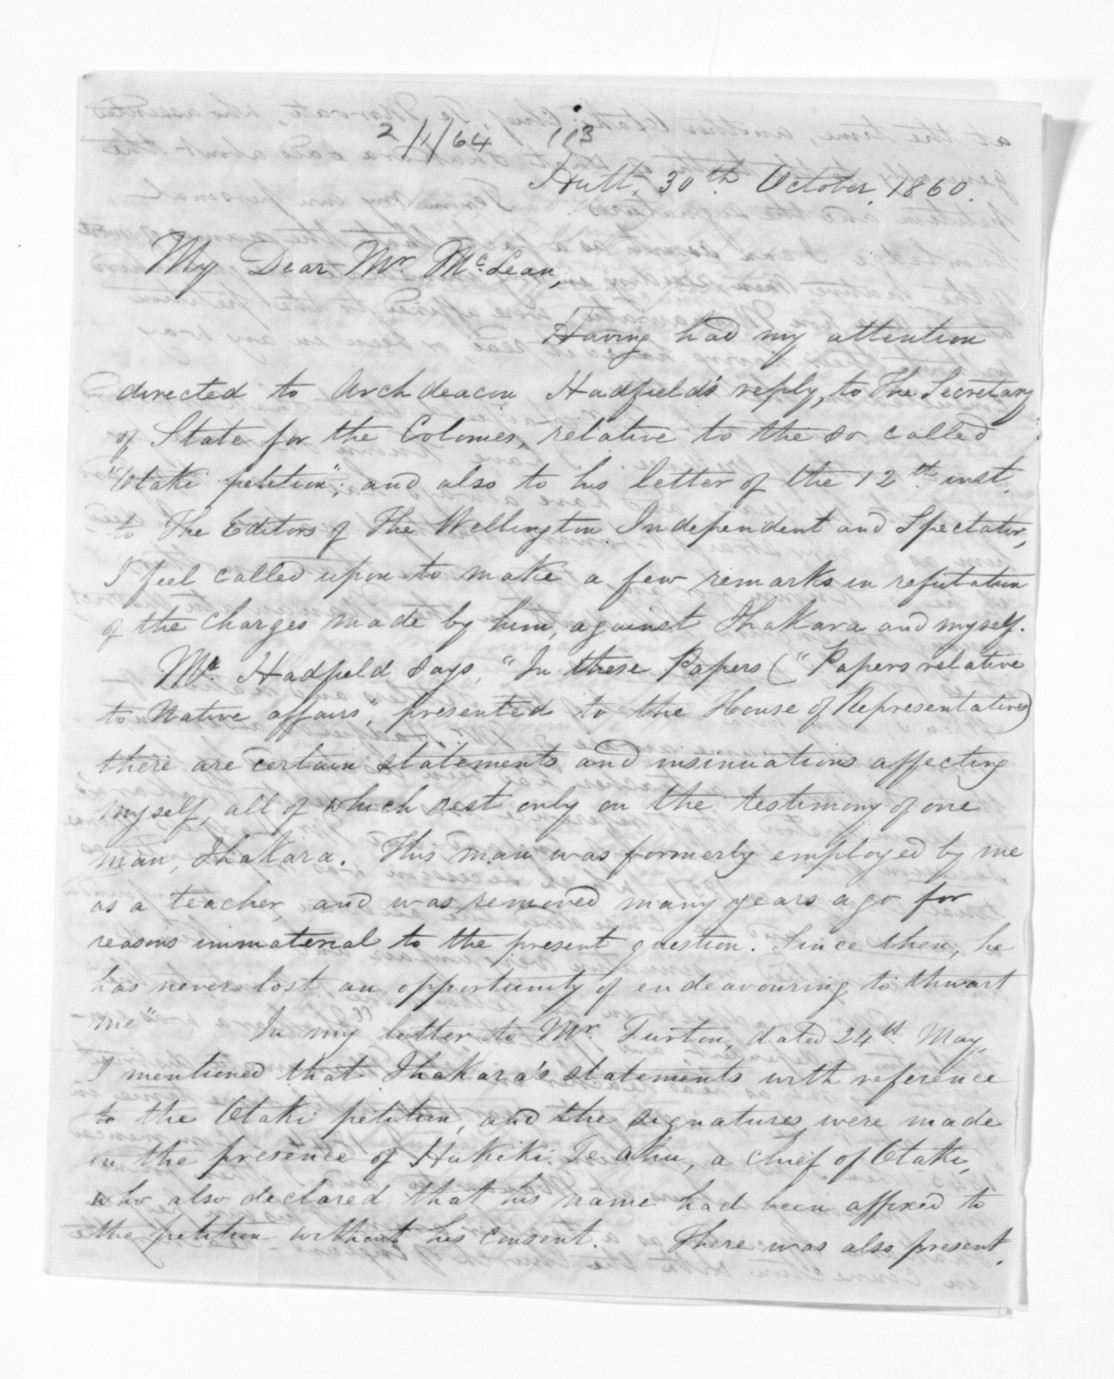 2/1/64 113
Hutt, 30th October, 1860.
My Dear Mr. McLean,
Having had my attention
directed to Archdeacon Hadfield's reply, to The Secretary
of State for the Colonies, relative to the so called
"Otaki petition"; and also to his letter of the 12th inst.
to The Editors of The Wellington Independent and Spectator,
I feel called upon to make a few remarks in refutation
of the charges made by him, against Ihakara and myself.
Mr. Hadfield says, "In these Papers ("Papers relative
to Native affairs", presented to the House of Representatives)
there are certain statements and insinuations affecting
myself, all of which rest only on the testimony of one
man, Ihakara. This man was formerly employed by me
as a teacher, and was removed many years ago for
reasons immaterial to the present question. Since then, he
has never lost an opportunity of endeavouring to thwart
me"
In my letter to Mr. Turton, dated 24th May,
I mentioned that Ihakara's statements with reference
to the Otaki petition, and the signatures, were made
in the presence of Hukiki Te Ahu, a chief of Otaki,
who also declared that his name had been affixed to
the petition without his consent. There was also present,